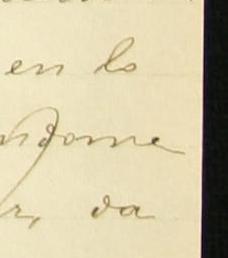 en lo
ndome
r, da